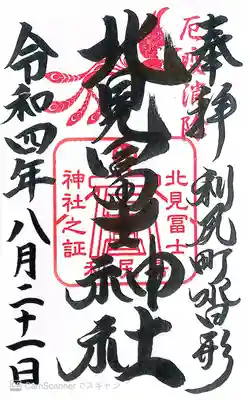 奉拝 利尻町沓形
北見冨士神社
北見冨士
神社之証
令和四年八月二十一日
CamScanner でスキャン